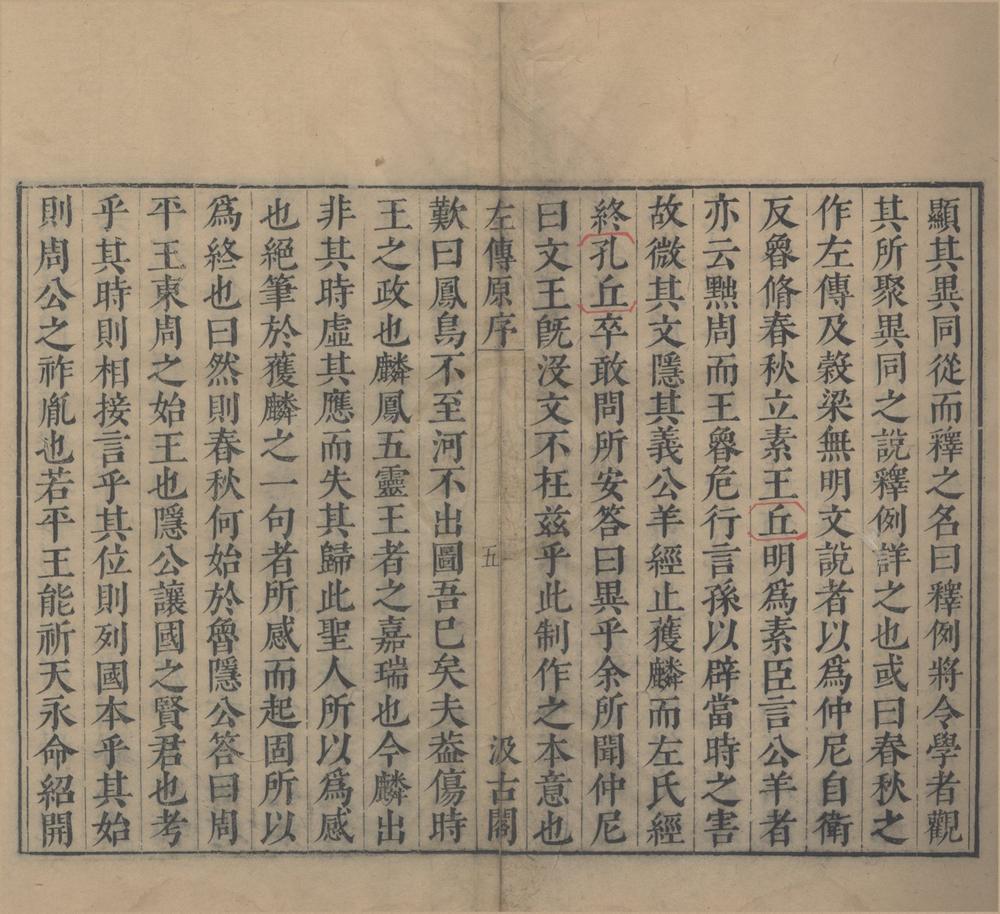 顯其異同從而釋之名曰釋例將令學者觀
其所聚異同之說釋例詳之也或曰春秋之
作左傳及榖梁無明文說者以爲仲尼自衛
反魯脩春秋立素王丘明爲素臣言公羊者
亦云黜周而王魯危行言孫以辟當時之害
故微其文隱其義公羊經止獲麟而左氏經
終孔丘卒敢問所安答曰異乎余所聞仲尼
曰文王旣没文不在兹乎此制作之本意也
左傳原序 五 汲古閣
歎曰鳳鳥不至河不出圖吾已矣夫葢傷時
王之政也麟鳳五靈王者之嘉瑞也今麟出
非其時虛其應而失其歸此聖人所以爲感
也絕筆於獲麟之一句者所感而起固所以
爲終也曰然則春秋何始於魯隱公答曰周
平王東周之始王也隱公讓國之賢君也考
乎其時則相接言乎其位則列國本乎其始
則周公之祚胤也若平王能祈天永命紹開